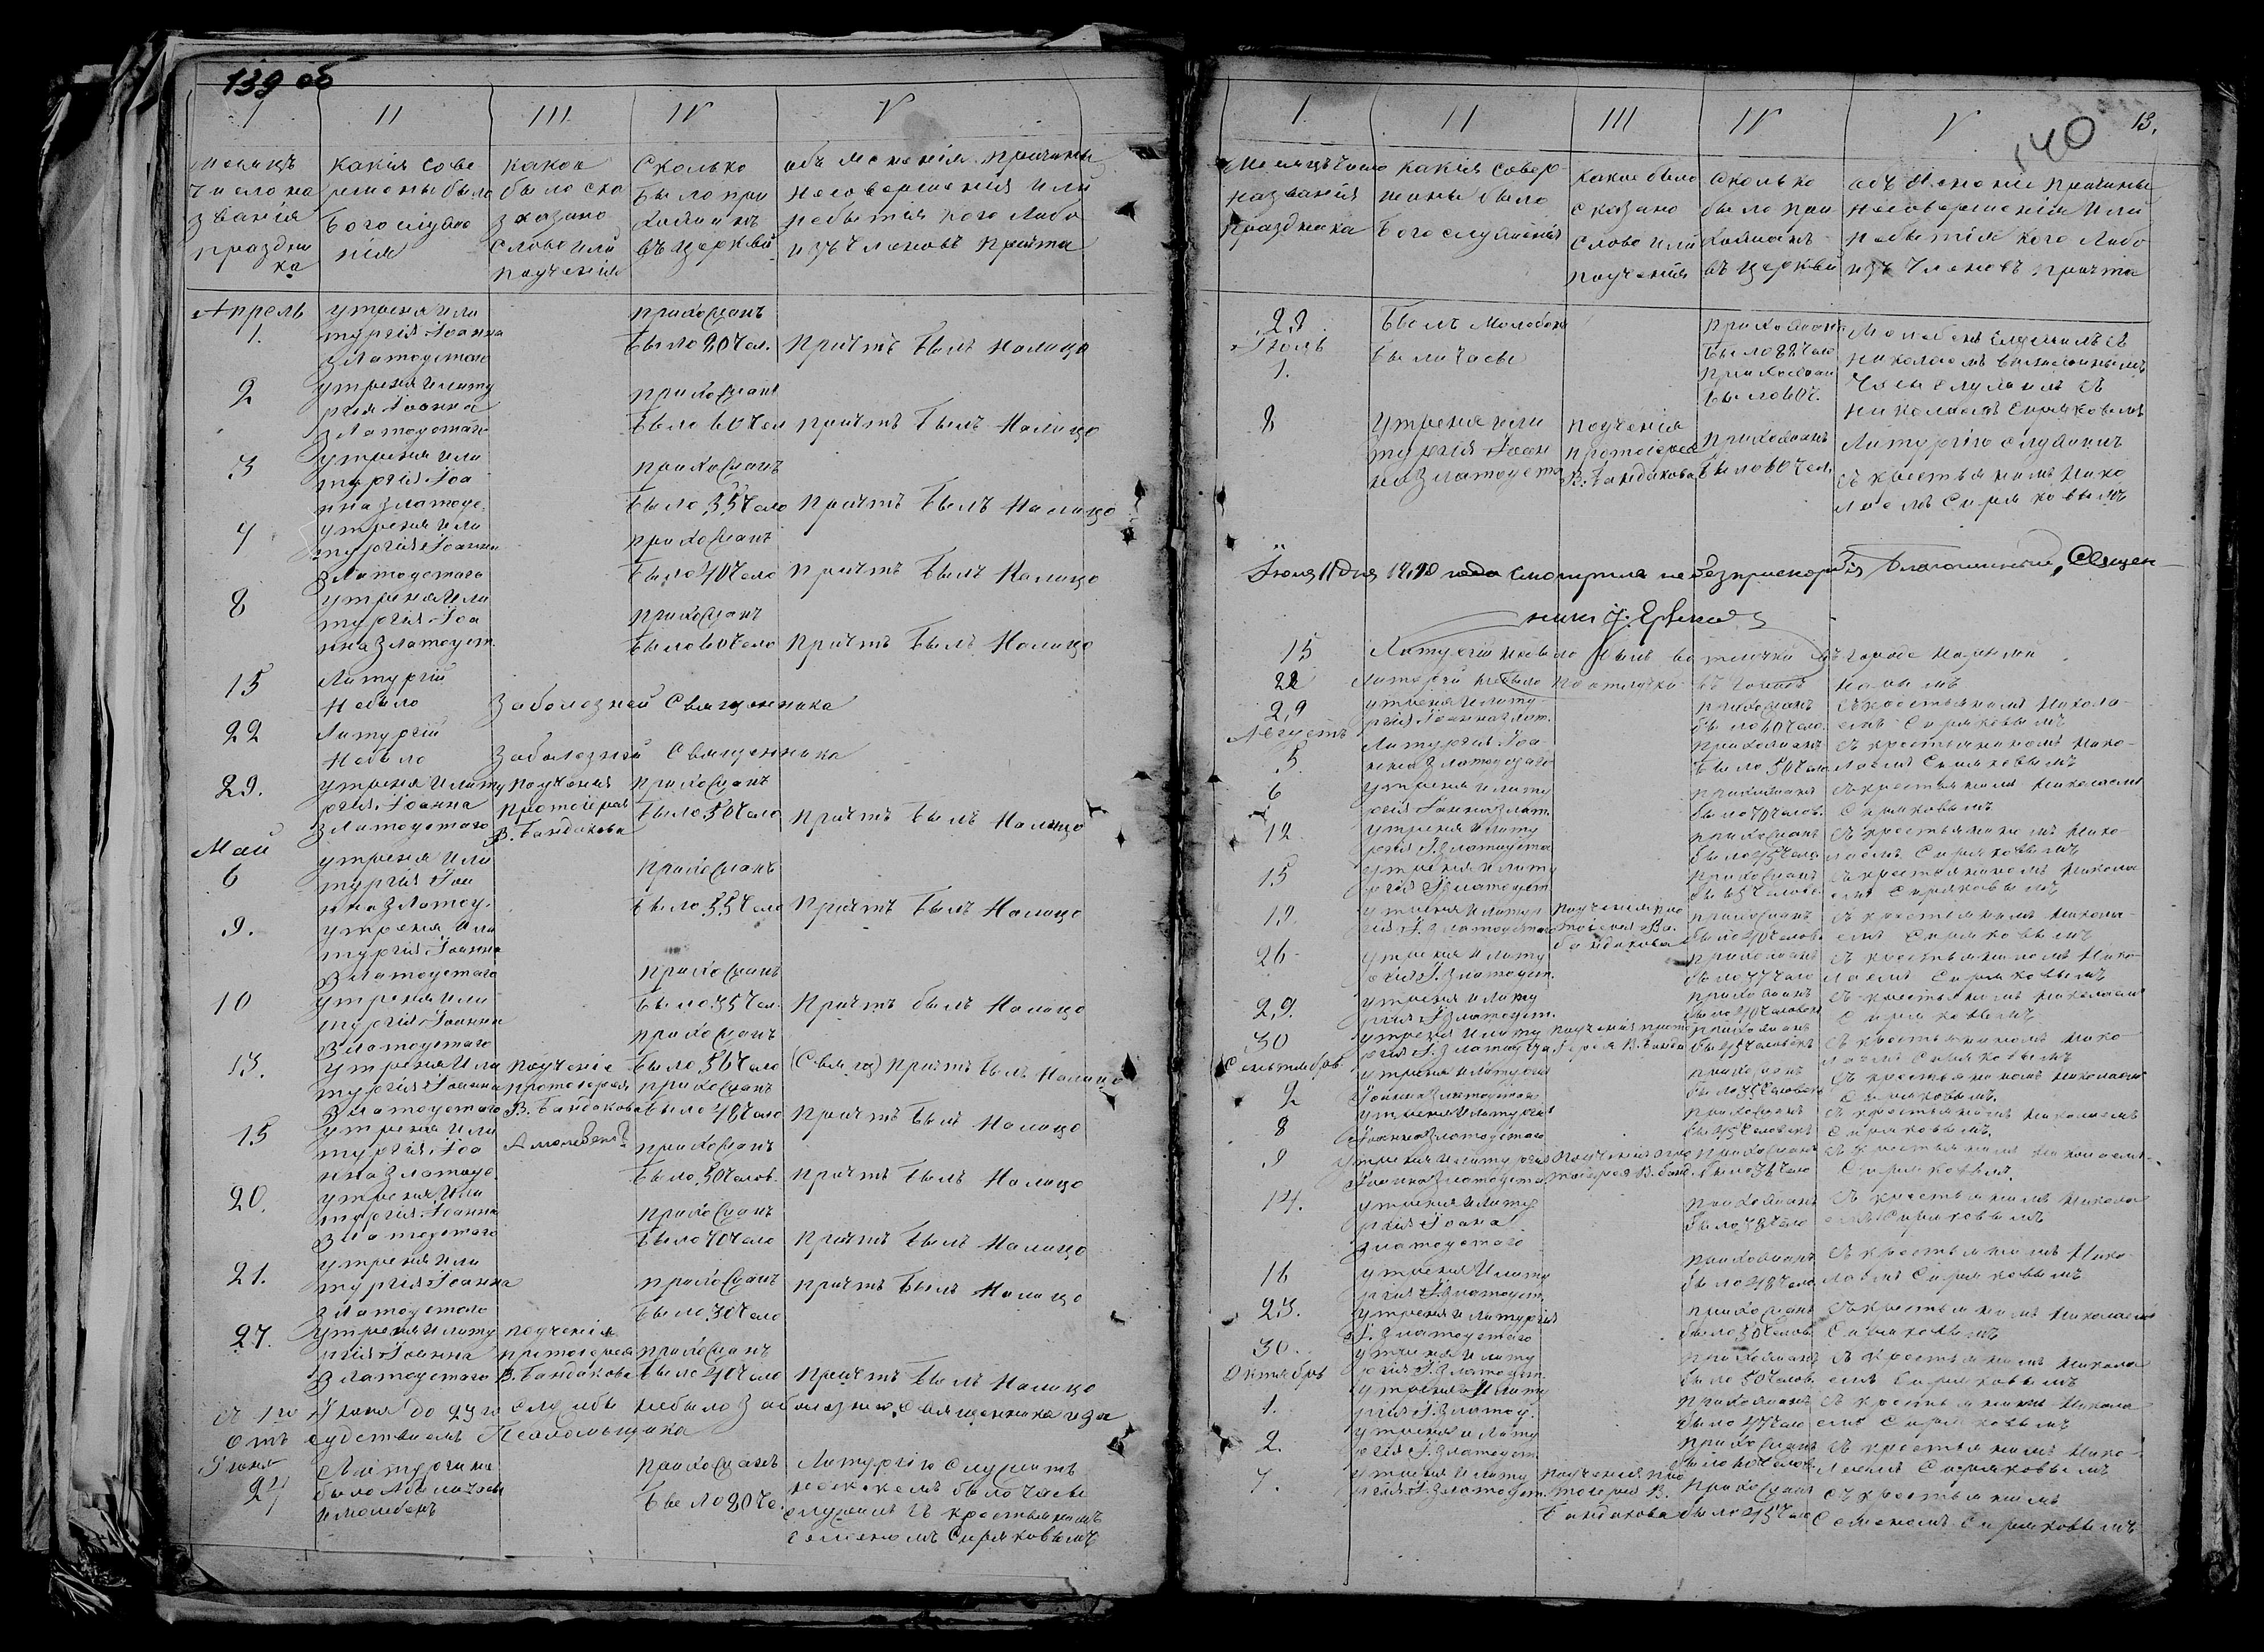 139 об
I II III IV V
Месяцъ число на звания праздни ка
какія сове ршены было Богослуже нія
какое было ска зказано слово или поучения
Сколько было при хожанъ въ церкви
объ мснения причины несовершения или небытия кого либо изъ членовъ причта
Апрель
1. утреня и ли тургія Іоанна Златоустаго прихожанъ было 20 чел. Причтъ былъ налицо
2 утреня и литу ргія Іоанна Златоустаго прихожанъ было 60 чел причтъ былъ налицо
3 утреня и ли тургія Іоа нна Златоус. прихожанъ было 35 чело Причтъ былъ налицо
4 утреня и ли тургія Іоанна Златоустаго прихожанъ было 40 чело Причтъ былъ налицо
8 утреня и ли тургія Іоа нна Златоуст. прихожанъ было 60 чело Причтъ былъ налицо
15 Литургіи небыло заболезней Священника
22 Литургіи небыло заболезней Священника
29. утреня и литу ргія Іоанна Златоустаго поучения протоіерея В. Бандакова прихожанъ было 50 чело Причтъ былъ налицо
Май
6 утреня и ли тургія Іоа нна Златоу. прихожанъ было 55 чело Причтъ былъ налицо
9. утреня и ли тургія Іоанна Златоустаго прихожанъ было 35 чел. Причтъ былъ налицо
10 утреня и ли тургія Іоанна Златоустаго прихожанъ было 56 чело (Свящ) Причтъ былъ налицо
13. утреня и ли тургія Іоанна Златоустаго поучение протоіерея В. Бандакова прихожанъ было 48 чело Причтъ былъ налицо
15 утреня и ли тургія Іоа нна Златоус. А молебенъ? прихожанъ было 50 челов. причтъ былъ налицо
20. утреня и ли тургія Іоанна Златоустаго прихожанъ было 40 чело Причтъ былъ налицо
21. утреня и ли тургія Іоанна Златоустаго прихожанъ было 30 чело причтъ былъ налицо
27. утреня и литу ргія Іоанна Златоустаго поученія протоіерея В. Бандакова прихожанъ было 40 чело Причтъ былъ налицо
съ 1го Іюня до 29го службы небыло за болезнію Священника и за
отъ судствиемъ Псаломьщика
Іюня
24 Литургіи не было А были часы и молебенъ прихожанъ было 20 че. Литургію служить было часы служилъ съ крестьяниномъ Семеномъ Сиряковымъ
140 13.
I. II III IV V
Месяцъ число названия праздника
какія совер шены было Богослужения
какое было сказано слово или поучения
сколько было при хожанъ въ церкви
объ мснение причины несовершения или небытия кого либо изъ членовъ причта
29. былъ молебенъ прихожанъ было 22 чело Молебенъ служилъ съ Николаемъ
Іюль
1. были часы прихожан было 60 ч. Часы служилъ съ Николаемъ Сиряковымъ
8 Утреня и ли тургія Іоан на Златоуста поученія протоіерея В. Бандакова прихожанъ было 60 чел. Литургію служилъ съ крестьяниномъ Нико лаемъ Сиряковымъ
Іюля 11 дня 1890 года смотрила небезприскорбія Благочинный, Священ-
никъ
15 Литургіи небыло былъ въ отлучки въ городе Нарыми
22 Литургіи небыло по отлучки въ городъ Нарымъ
29 утреня и литу ргія Іоанна Злат. прихожанъ было 60 чело. съ крестьяниномъ Никола емъ Сиряковымъ
Августъ
5 Литургія Іоа нна Златоустаго прихожанъ было 50 чело. съ крестьяниномъ Нико лаемъ Сиряковымъ
6 утреня и литу ргія Іоанна Злат. прихожанъ было 40 челов. съ крестьяниномъ Николаемъ Сиряковымъ
12 утреня и литу ргія І. Златоуста прихожанъ было 45 чело. съ крестьяниномъ Нико лаемъ Сиряковымъ
15 утреня и литу ргія І. Златоуст. прихожанъ съ крестьяниномъ Никола емъ Сиряковымъ
19. утреня и литур гія І. Златоустаго поучения про тоіерея Ва. Бандакова прихожанъ было 40 челов. съ крестьяниномъ Никола емъ Сиряковымъ
26 утреня и литу ргія І. Златоуст. прихожанъ было 47 чело съ крестьяниномъ Нико лаемъ Сиряковымъ
29. утреня и литу ргія І. Златоуст. прихожанъ было 40 человек съ крестьяниномъ Николаемъ Сиряковымъ
30 утреня и литу ргія І. Златоуста поучения прото іерея В. Банда прихожанъ было 45 человекъ съ крестьяниномъ Нико лаемъ Сиряковымъ
Сентябрь
2 утреня и литургія Іоанна Златоустаго прихожанъ было 35 человекъ съ крестьяниномъ Николаемъ Сиряковымъ.
8 утреня и литургія Іоанна Златоустаго прихожанъ было 45 человекъ съ крестьяниномъ Николаемъ Сиряковымъ.
9 утреня и литургія Іоанна Златоуста поучения про тоіерея В. Банд. прихожанъ было 36 чело съ крестьяниномъ Николаемъ Сиряковымъ.
14. утреня и литу ргія Іоана Златоустаго прихожанъ было 48 чело съ крестьяниномъ Никола емъ Сиряковымъ
16 утреня и литу ргія І. Златоуст. прихожанъ было 48 чело. съ крестьяниномъ Нико лаемъ Сиряковымъ
23. утреня и литургія І. Златоустаго прихожанъ было 30 челов. съ крестьяниномъ Николаемъ Сиряковымъ
30. утреня и литу ргія І. Златоуст. прихожанъ было 50 челов. съ крестьяниномъ Никола емъ Сиряковымъ
Октябрь
1. утреня и литу ргія І. Златоу. прихожанъ было 47 чело съ крестьяниномъ Никола емъ Сиряковымъ
2. утреня и литу ргія І. Златоуст. прихожанъ было 60 челов. съ крестьяниномъ Нико лаемъ Сиряковымъ
7. утреня и литу ргія І. Златоуст. поучения про тоіерея В. Бандакова прихожанъ было 45 чело съ крестьяниномъ Семеномъ Сиряковымъ